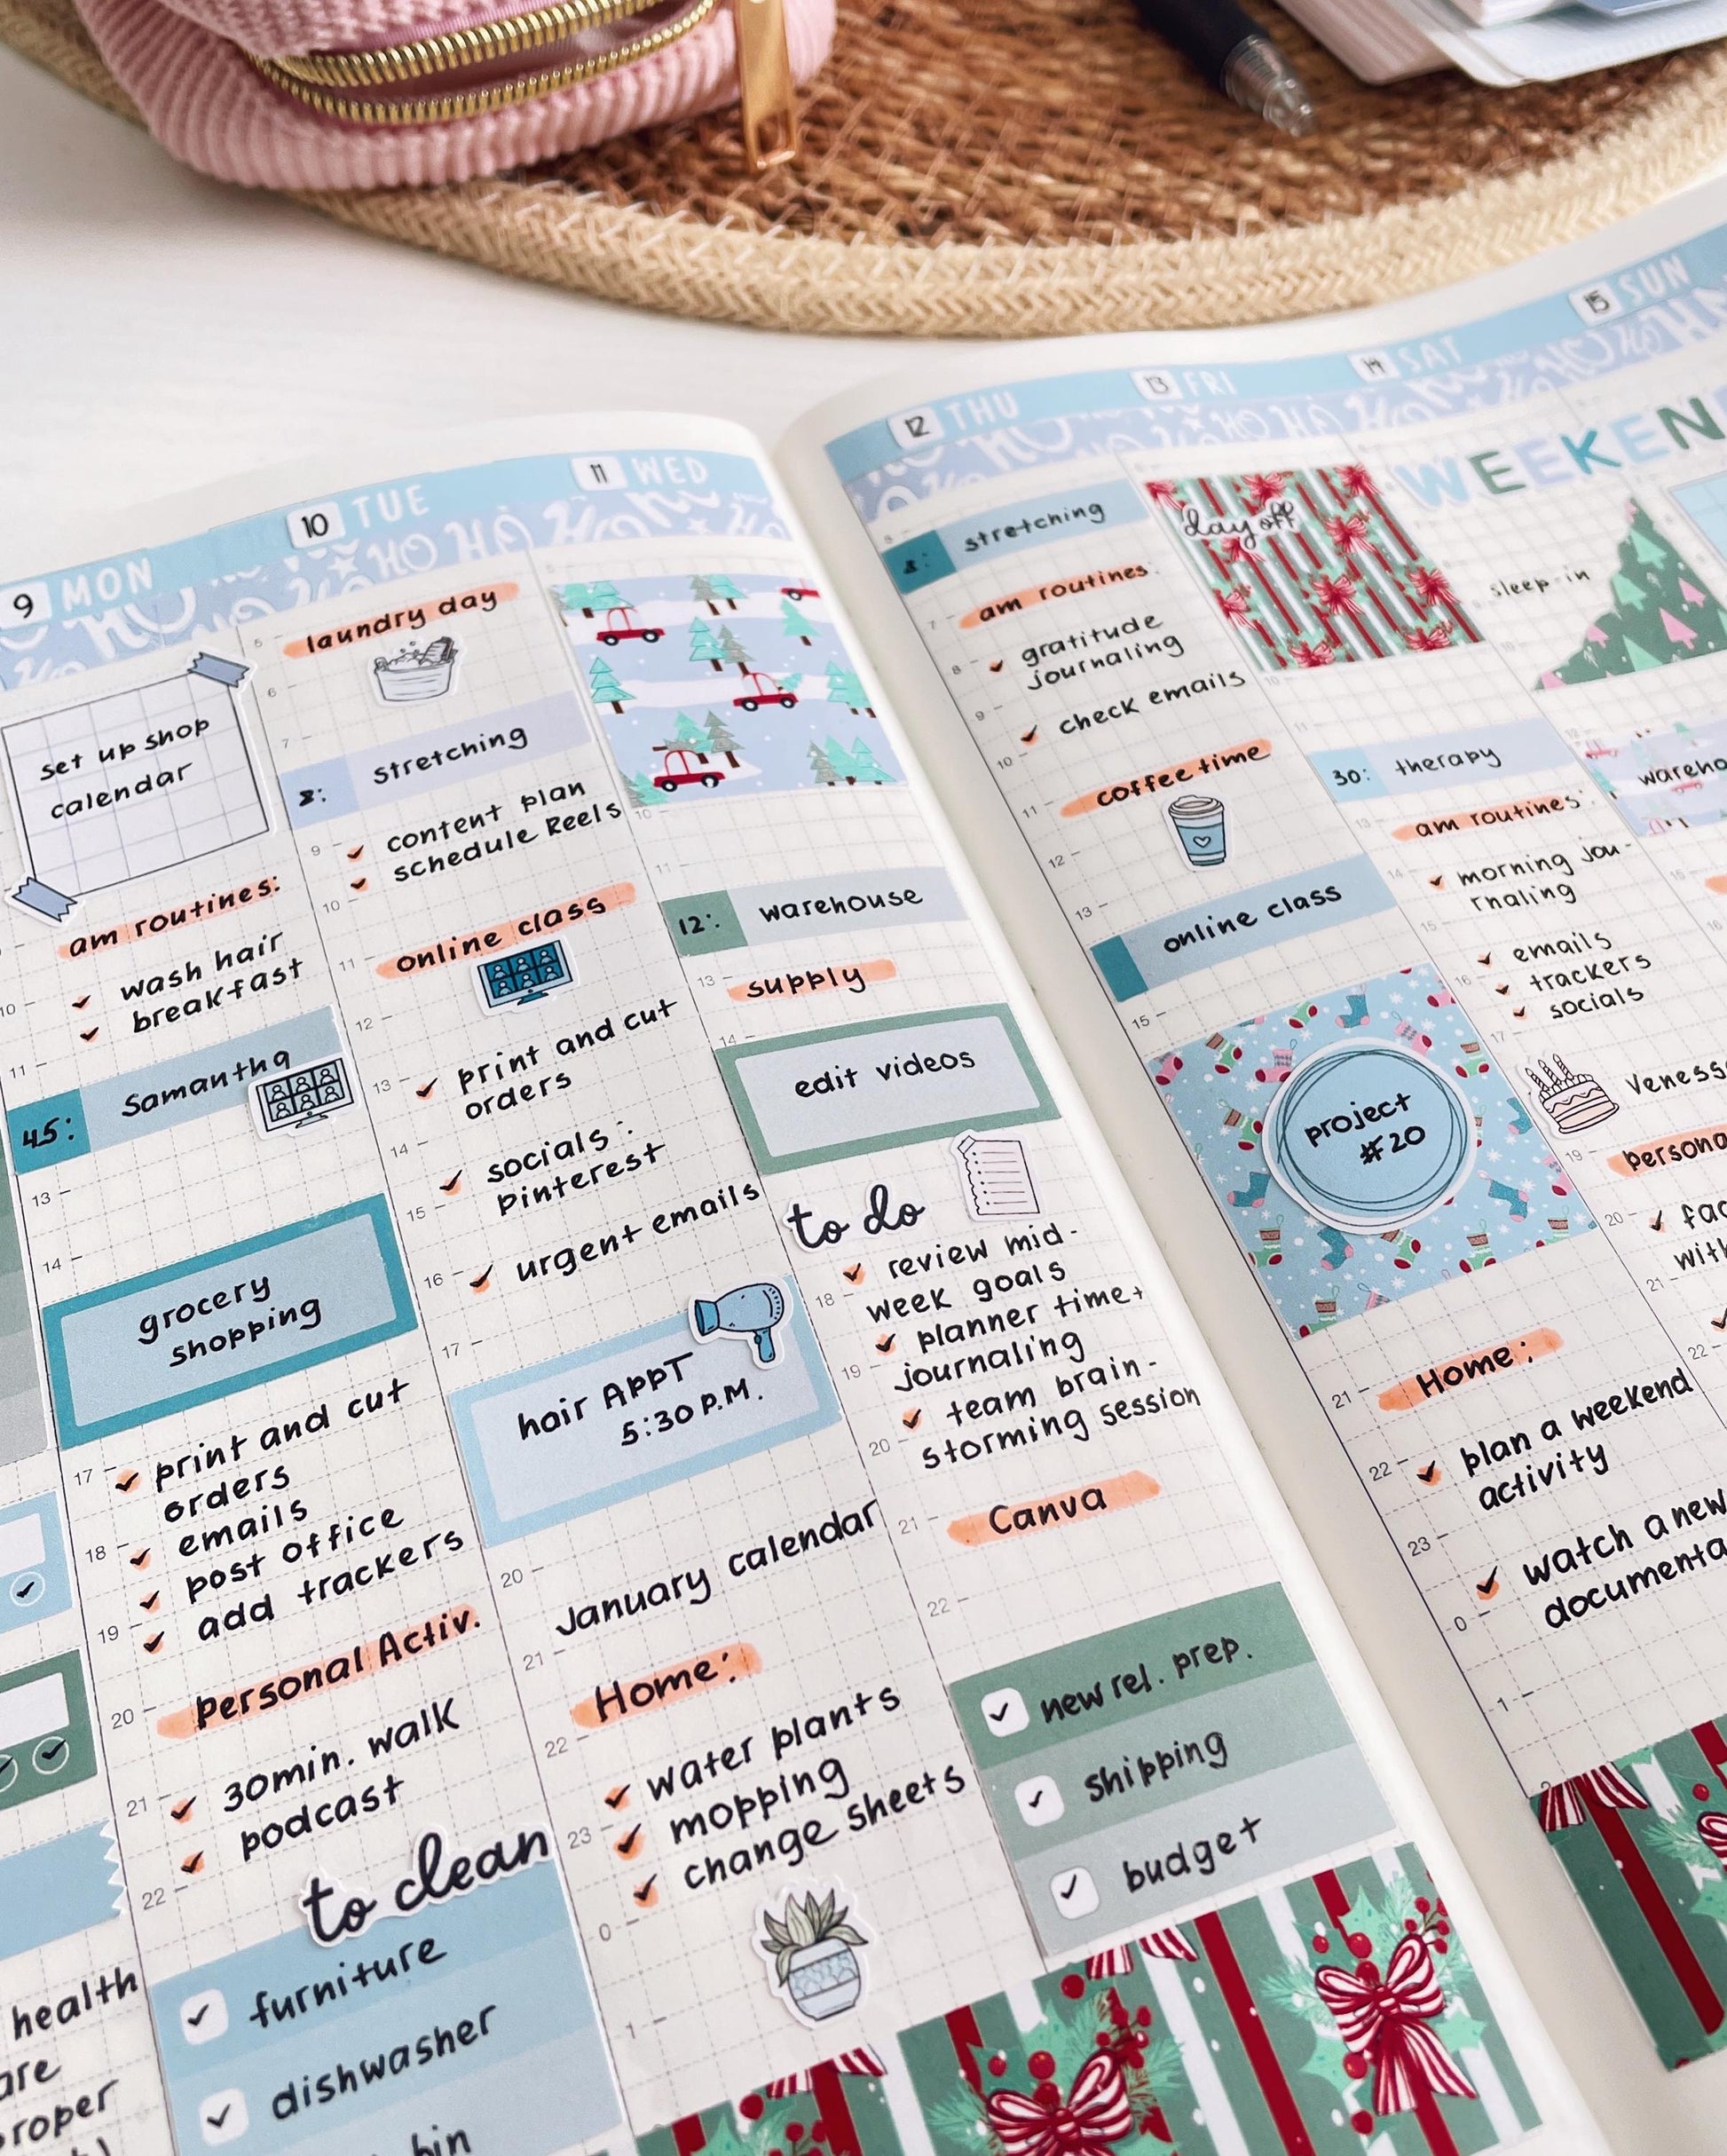 9 MON
set up shop
calendar
am routines:
wash hair
breakfast
11
45: Samantha
13
14
grocery
shopping
17
print and cut
orders
18
emails
post office
19
add trackers
20
Personal Activ.
21
30min. walk
podcast
22
to clean
furniture
dishwasher
bin
health
10 TUE
5
laundry day
6
7
8: stretching
9
content plan
schedule Reels
10
online class
11
12
13
print and cut
orders
14
socials:
pinterest
15
16
urgent emails
17
hair APPT
5:30 P.M.
20
January calendar
21
Home:
22
water plants
mopping
23
change sheets
0
1
11 WED
10
11
12: warehouse
13
supply
14
edit videos
to do
review mid-
18
week goals
planner time+
19
journaling
team brain-
20
storming session
21
Canva
22
new rel. prep.
shipping
budget
12 THU
8: stretching
am routines
7
gratitude
8
journaling
9
check emails
10
coffee time
11
12
13
online class
15
project
#20
21
Home:
22
plan a weekend
activity
23
watch a new
0
documenta
1
13 FRI
day off
10
11
30: therapy
13
am routines:
14
morning jou-
rnaling
15
16
emails
trackers
socials
17
Veness
19
persona
20
fac
with
21
22
14 SAT
15 SUN
WEEKEN
sleep-in
wareho